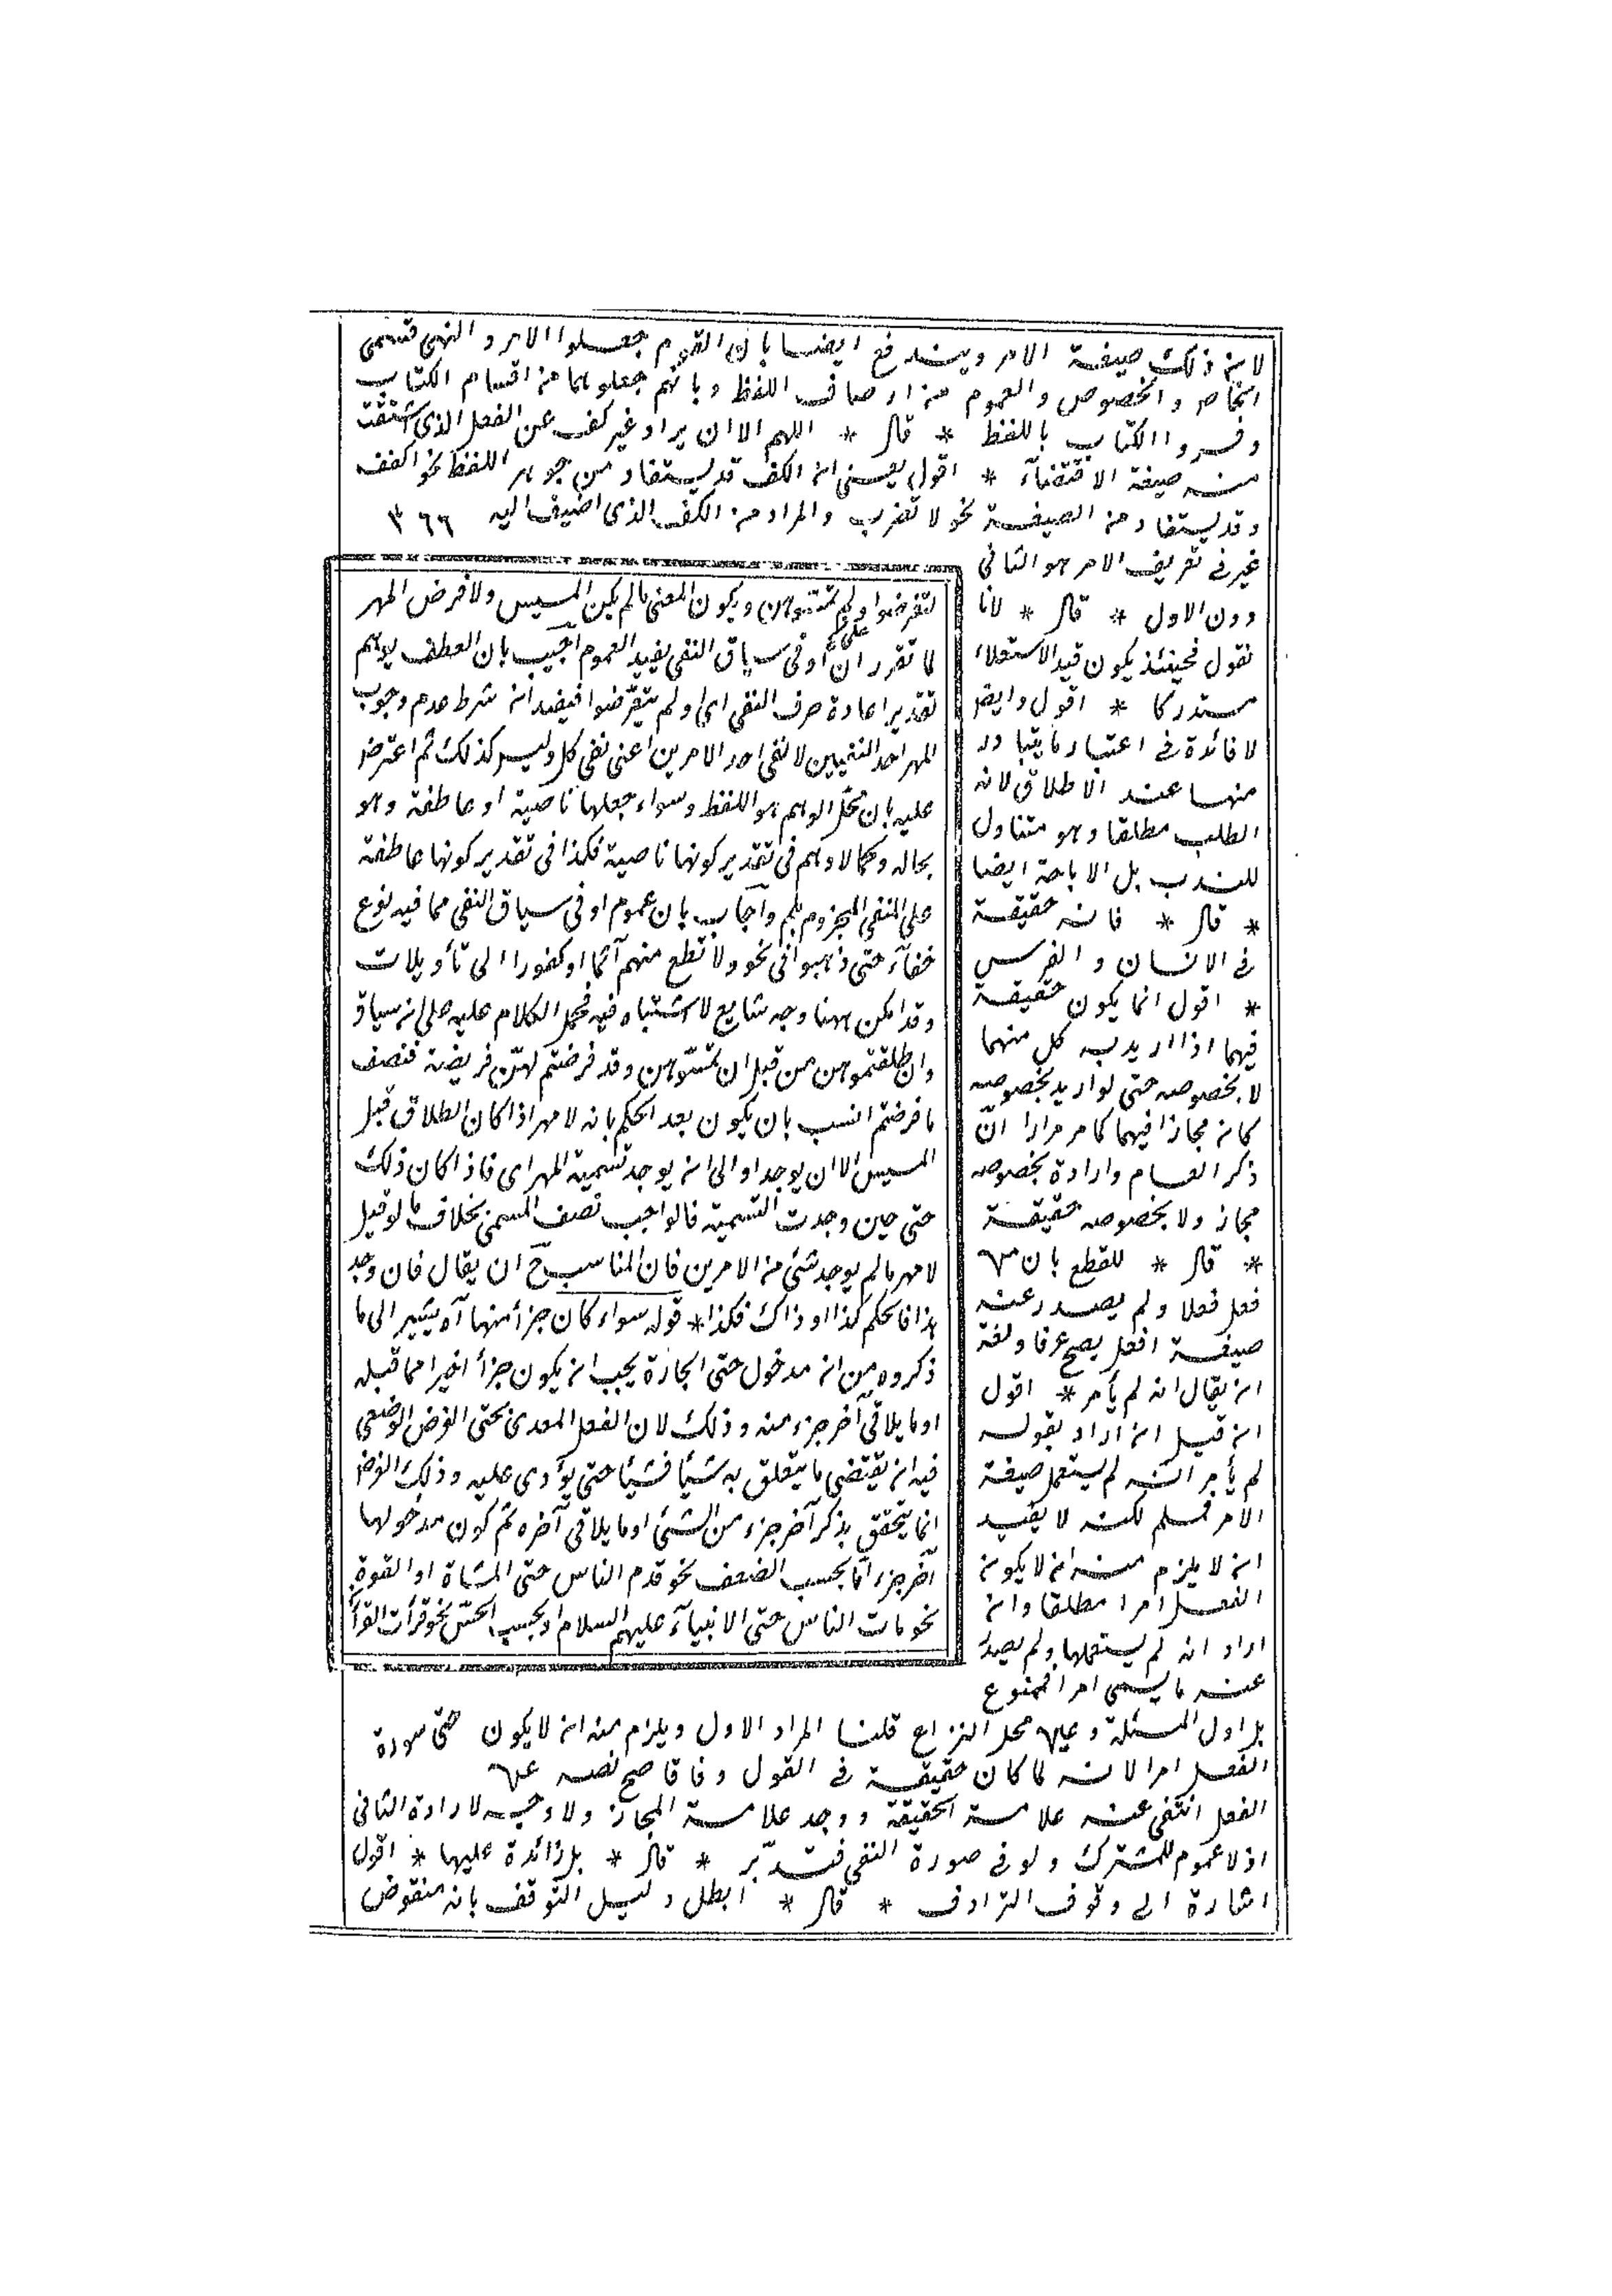 لان ذلك صيغة الامر ويندفع ايضا بان القوم جعلوا الامر والنهى قسمى
الخاص والخصوص والعموم من اوصاف اللفظ وبانهم جعلوهما من اقسام الكتاب
وفسروا الكتاب باللفظ * قال * اللهم الا ان يراد غير كف عن الفعل الذى اشتقت
منه صيغة الاقتضاء * اقول يعنى ان الكف قد يستفاد من جوهر اللفظ نحو اكفف
وقد يستفاد من الصيغة نحو لا تضرب والمراد من الكف الذى اضيف اليه ٣٦٦
غير فى تعريف الامر هو الثانى
دون الاول * قال * لانا
نقول فحينئذ يكون قيد الاستعلاء
مستدركا * اقول وايضا
لا فائدة فى اعتبار ما يتبادر
منها عند الاطلاق لانه
الطلب مطلقا وهو متناول
للندب بل الاباحة ايضا
* قال * فانه حقيقة
فى الانسان والفرس
* اقول انما يكون حقيقة
فيهما اذا اريد به كل منهما
لا بخصوصه حتى لو اريد بخصوصه
كان مجازا فيهما كما مر مرارا ان
ذكر العام وارادة بخصوصه
مجاز ولا بخصوصه حقيقة
* قال * للقطع بان من
فعل فعلا ولم يصدر عنه
صيغة افعل يصح عرفا ولغة
ان يقال انه لم يأمر * اقول
ان قيل ان اراد بقوله
لم يأمر انه لم يستعمل صيغة
الامر فمسلم لكنه لا يفيد
ان لا يلزم منه ان لا يكون
الفعل امرا مطلقا وان
اراد انه لم يستعملها ولم يصدر
عنه ما يسمى امرا فممنوع
بل اول المسئلة وعين محل النزاع قلنا المراد الاول ويلزم منه ان لا يكون حتى سورة
الفعل امرا لانه لما كان حقيقة فى القول وفاقا صح نفيه عن
الفعل انتفى عنه علامة الحقيقة ووجد علامة المجاز ولا وجه لارادة الثانى
اذ لا عموم للمشترك ولو فى صورة النفى فتدبر * قال * بل زائدة عليها * اقول
اشارة الى وقوف الترادف * قال * ابطل دليل التوقف بانه منقوض
لتفرضوا ولم تمسوهن ويكون المعنى ما لم يكن المسيس ولا فرض المهر
على
لما تقرر ان او فى سياق النفى يفيد العموم اجيب بان العطف يوهم
تقدير اعادة حرف النفى اى ولم تتفرضوا فيفيد ان شرط عدم وجوب
المهر احد النفيين لا نفى احد الامرين اعنى نفى كل وليس كذلك ثم اعترض
عليه بان محل الوهم هو اللفظ وسواء جعلها ناصبة او عاطفة وهو
بحاله وكما لا وهم فى تقدير كونها ناصبة فكذا فى تقدير كونها عاطفة
على المنفى المجزوم بلم واجاب بان عموم او فى سياق النفى مما فيه نوع
خفاء حتى ذهبوا فى نحو ولا تطع منهم آثما او كفورا الى تأويلات
وقد امكن ههنا وجه شايع لا اشتباه فيه فحمل الكلام عليه على ان سياق
وان طلقتموهن من قبل ان تمسوهن وقد فرضتم لهن فريضة فنصف
ما فرضتم انسب بان يكون بعد الحكم بانه لا مهر اذا كان الطلاق قبل
المسيس الا ان يوجد او الى ان يوجد تسمية المهر اى فاذا كان ذلك
حتى حين وجدت التسمية فالواجب نصف المسمى بخلاف ما لو قيل
لا مهر ما لم يوجد شئ من الامرين فان المناسب ح ان يقال فان وجد
هذا فالحكم كذا او ذاك فكذا * قوله سواء كان جزأ منها آه يشير الى ما
ذكروه من ان مدخول حتى الجارة يجب ان يكون جزأ اخيرا مما قبله
او ما يلاقى آخر جزء منه وذلك لان الفعل المعدى بحتى الغرض الوضعى
فيه ان يقتضى ما يتعلق به شيأ فشيأ حتى يؤدى عليه وذلك الغرض
انما يتحقق بذكر آخر جزء من الشئ او ما يلاقى آخره ثم كون مدخولها
آخر جزء اما بحسب الضعف نحو قدم الناس حتى المشاة او القوة
نحو مات الناس حتى الانبياء عليهم السلام او بحسب الحس نحو قرأت القرآن